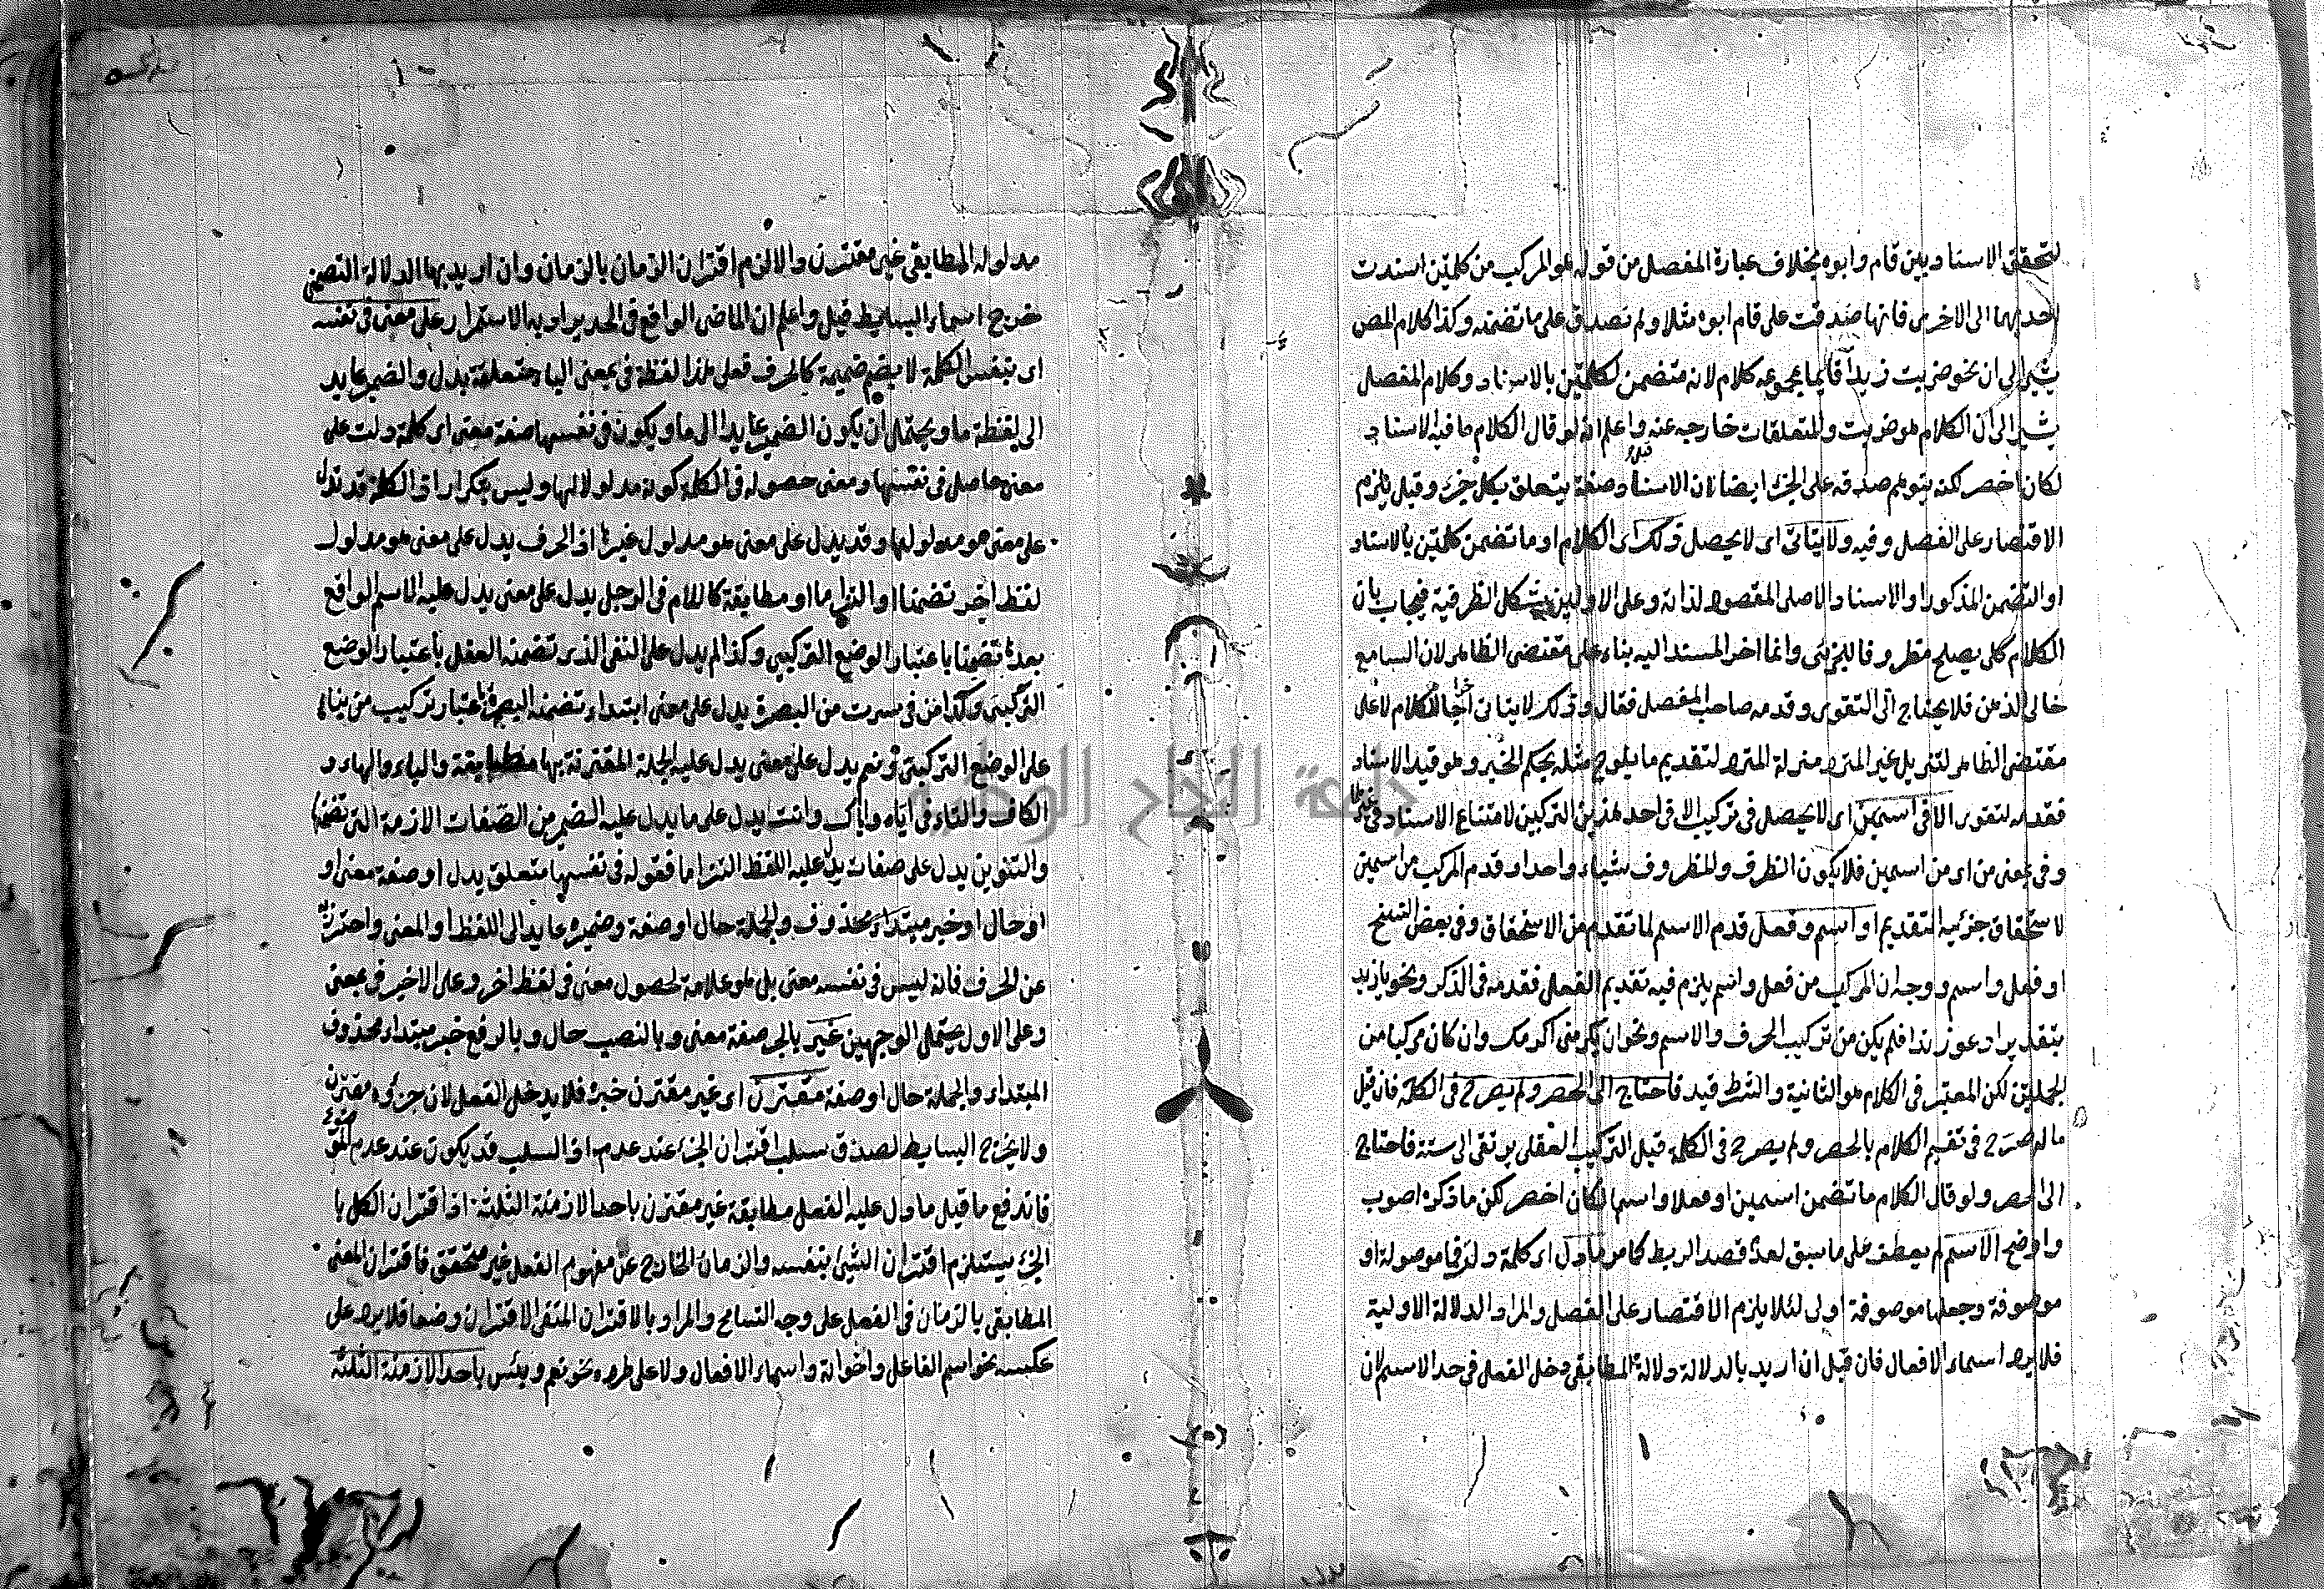 لتحقق الاسناد بين قام وابوه بخلاف عبارة المفصل من قوله هو المركب من كلمتين اسندت
احديهما الى الاخرى فانها صدقت على قام ابوه مثلا ولم تصدق على ما تضمنه وكذا كلام المص
يشير الى ان نحو ضربت زيدا قايما مجموعه كلام لانه متضمن لكلمتين بالاسناد وكلام المفصل
يشير الى ان الكلام هو ضربت والمتعلقات خارجه عنه واعلم انه لو قال الكلام ما فيه الاسناد
لكان اخصر لكنه يتوهم صدقه على الجزء ايضا لان الاسناد صفة يتعلق بكل جزء وقيل يلزم
الاقتصار على الفصل وفيه ولا يتاتى اى لا يحصل ذلك اى الكلام او ما تضمن كلمتين بالاسناد
او التضمن المذكور او الاسناد الاصلى المقصود لذاته وعلى الاولين يشكل الظرفية فيجاب بان
الكلام كلى يصلح مظروفا للجزئى وانما اخر المسند اليه بناء على مقتضى الظاهر لان السامع
خالى الذهن فلا يحتاج الى التقوى وقدمه صاحب المفصل فقال وذلك لا يتاتى الكلام لا على
مقتضى الظاهر لتنزيل غير المتردد منزلة المتردد لتقديم ما يلوح مثله بحكم الخبر وهو قيد الاسناد
فقدمه لتقوى الا فى اسمين اى لا يحصل فى تركيب الا فى احد هذين التركبين لامتناع الاسناد فى غيرها
وفى بمعنى من اى من اسمين فلا يكون الظرف والمظروف شياء واحدا وقدم المركب من اسمين
لاستحقاق جزئيه التقديم او اسم وفعل قدم الاسم لما تقدم من الاستحقاق وفى بعض النسخ
او فعل واسم ووجه ان المركب من فعل واسم يلزم فيه تقديم الفعل فقدمه فى الذكر ونحو يا زيد
بتقدير ادعو زيدا فلم يكن من تركيب الحرف والاسم ونحو ان تكرمنى اكرمك وان كان مركبا من
الجملتين لكن المعتبر فى الكلام هو الثانية والشرط قيد فاحتاج الى الحصر ولم يصرح فى الكلمة فان قيل
ما لم صرح فى تقسيم الكلام بالحصر ولم يصرح فى الكلمة قيل التركيب العقلى يرتقى الى ستة فاحتاج
الى الحصر ولو قال الكلام ما تضمن اسمين او فعلا واسما لكان اخصر لكن ما ذكره اصوب
واوضح الاسم لم يعطف على ما سبق لعدم قصد الربط كما مر ما دل اى كلمة دلت فما موصولة او
موصوفة وجعلها موصوفة اولى لئلا يلزم الاقتصار على الفصل والمراد الدلالة الاولية
فلا يرد اسماء الافعال فان قيل ان اريد بالدلالة دلالة المطابقى دخل الفعل فى حد الاسم لان
مدلوله المطابقى غير مقترن والا لزم اقتران الزمان بالزمان وان اريد بها الدلالة التضمنى
خرج اسماء البسايط قيل واعلم ان الماضى الواقع فى الحد يراد به الاستمرار على معنى فى نفسه
اى بنفس الكلمة لا بضم ضميمة كالحرف فعلى هذا لفظة فى بمعنى الباء متعلقة بدل والضمير عايد
الى لفظة ما ويحتمل ان يكون الضمير عايدا الى ما ويكون فى نفسها صفة معنى اى كلمة دلت على
معنى حاصل فى نفسها ومعنى حصوله فى الكلمة كونه مدلولا لها وليس بتكرار اذ الكلمة قد تدل
على معنى هو مدلولها وقد يدل على معنى هو مدلول غيرها اذ الحرف يدل على معنى هو مدلول
لفظ اخر تضمنا او التزاما او مطابقة كاللام فى الرجل يدل على معنى يدل عليه الاسم الواقع
بعده تضمنا باعتبار الوضع التركيبى وكذا لم يدل على النفى الذى تضمنه الفعل باعتبار الوضع
التركيبى وكذا من فى سرت من البصرة يدل على معنى ابتداء تضمنه البصرة باعتبار تركيب من بناء
على الوضع التركيبى ونعم يدل على معنى يدل عليه الجملة المقترنة بها مطابقة والياء والهاء و
الكاف والتاء فى اياه واياك وانت يدل على ما يدل عليه الضمير من الصفات الازمة التى تضمنها
والتنوين يدل على صفات يدل عليه اللفظ التزاما فقوله فى نفسها متعلق بدل او صفة معنى او
او حال او خبر مبتداء محذوف والجملة حال او صفة وضميره عايد الى اللفظ او المعنى واحترز به
عن الحرف فانه ليس فى نفسه معنى بل هو علامة لحصول معنى فى لفظ اخر وعلى الاخير فى بمعنى
وعلى الاول يحتمل الوجهين غير بالجر صفة معنى وبالنصب حال وبالرفع خبر مبتداء محذوف
المبتداء والجملة حال او صفة مقترن اى غير مقترن خبره فلا يدخل الفعل لان جزؤه مقترن
ولا يخرج البسايط لصدق سلب اقتران الجزء عند عدمه اذ السلب قد يكون عند عدم
فاندفع ما قيل ما دل عليه الفعل مطابقة غير مقترن باحد الازمنة الثلثة اذ اقتران الكل با
الجزء يستلزم اقتران الشئ بنفسه والزمان الخارج عن مفهوم الفعل غير متحقق فاقتران المعنى
المطابقى بالزمان فى الفعل على وجه التسامح والمراد بالاقتران المنفى الاقتران وضعا فلا يرد على
عكسه نحو اسم الفاعل واخواته واسماء الافعال ولا على طرده نحو نعم وبئس باحد الازمنة الثلثة